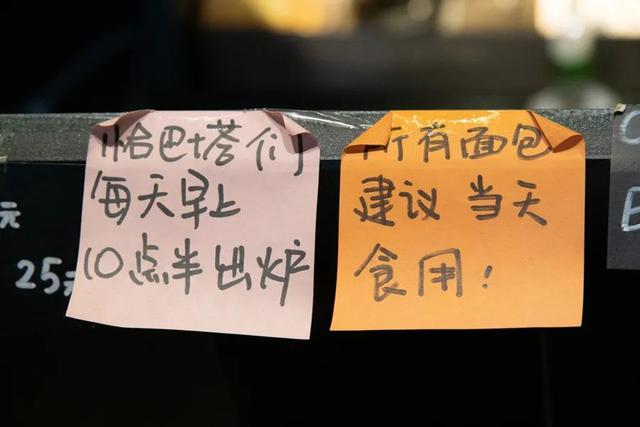 恰巴塔们
每天早上
10点半出炉
所有面包
建议当天
食用!
元
25元